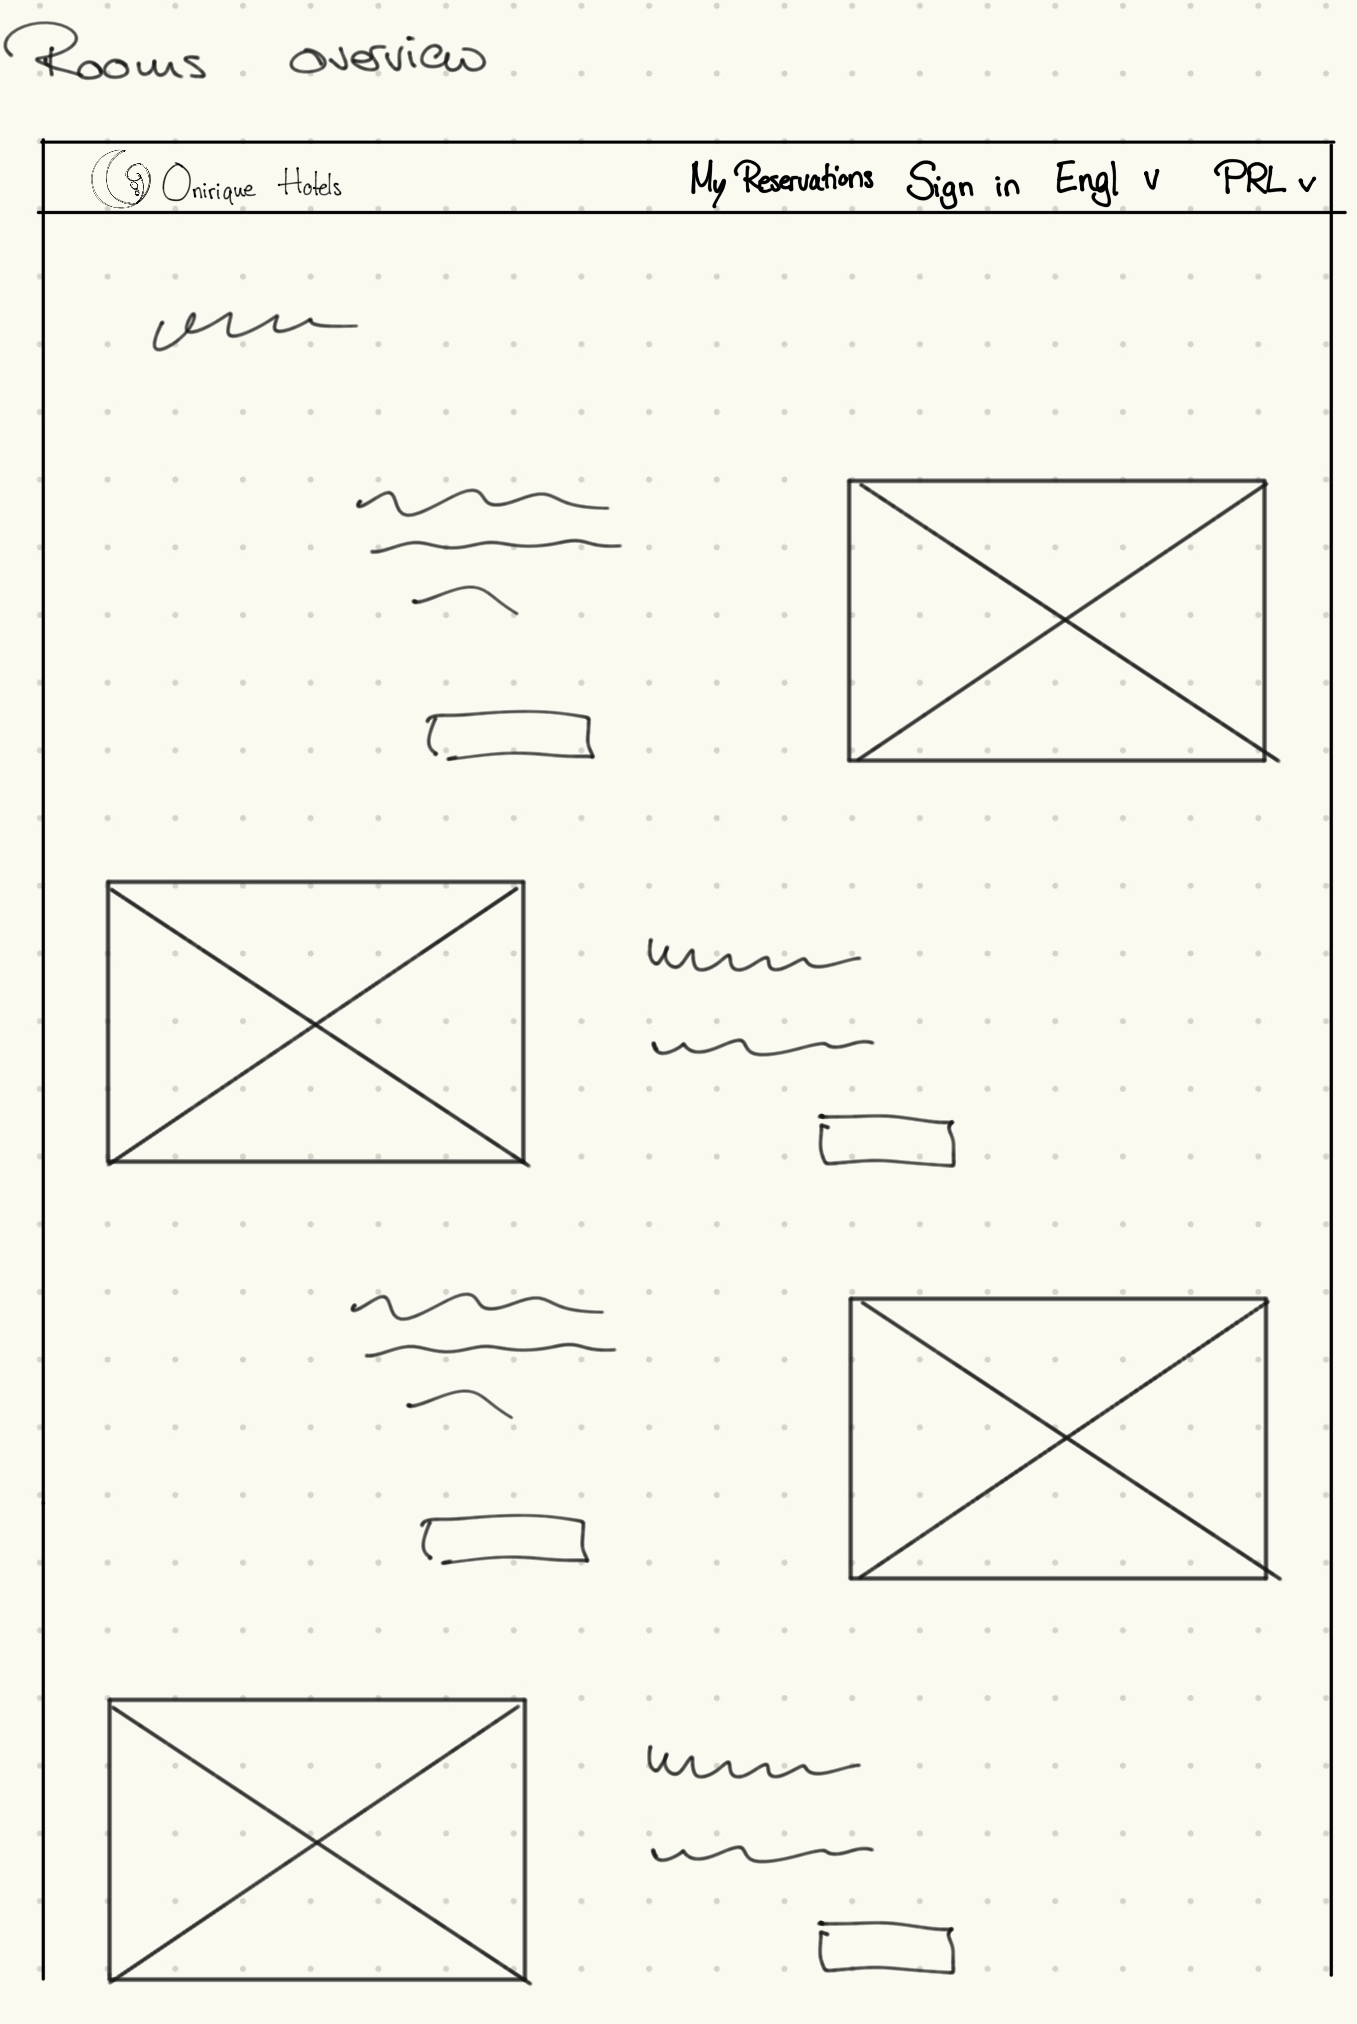 Rooms overview
Onirique Hotels My Reservations Sign in Engl v PRL v